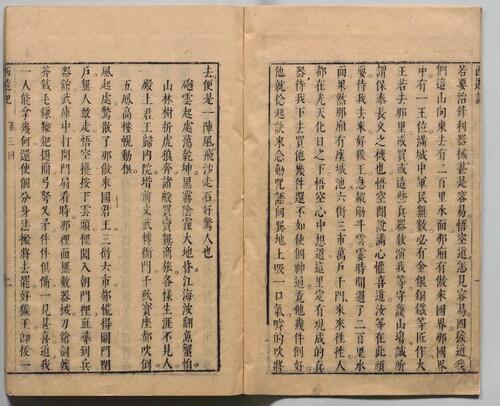 若要治鋒利器械甚是容易悟空道怎見容易四猴道我
們這山向東去有二百里水面那廂有傲來國界那國界
中有一王位滿城中軍民無數必有金銀銅鐵等匠作大
王若去那里或買或造些兵器教演我等守護山場誠所
謂保泰長久之機也悟空聞說滿心懽喜道汝等在此頑
耍待我去來好猴王急縱觔斗雲霎時間過了二百里水
面果然那廂有座城池六街三市萬戶千門來來往往人
都在光天化日之下悟空心中想道這里定有現成的兵
器我待下去買他幾件還不如使個神通覓他幾件倒好
他就捻起訣來念動咒語向巽地上吸一口氣嘑的吹將
去便是一陣風飛沙走石好驚人也
砲雲起處蕩乾坤黑霧陰霾大地昏江海波翻魚蟹怕
山林樹折虎狼奔諸般買賣無商旅各樣生涯不見人
殿上君王歸內院堦前文武轉衙門千秋寶座都吹倒
五鳳高樓幌動根
風起處驚散了那傲來國君王三街六市都慌得關門閉
戶無人敢走悟空纔按下雲頭徑闖入朝門裡直尋到兵
器館武庫中打開門扇看時那裡面無數器械刀鎗劍戟
斧鉞毛鐮鞭鈀撾簡弓弩叉矛件件俱備一見甚喜道我
一人能拿幾何還使個分身法搬將去罷好猴王即拔一
西遊記
第三回